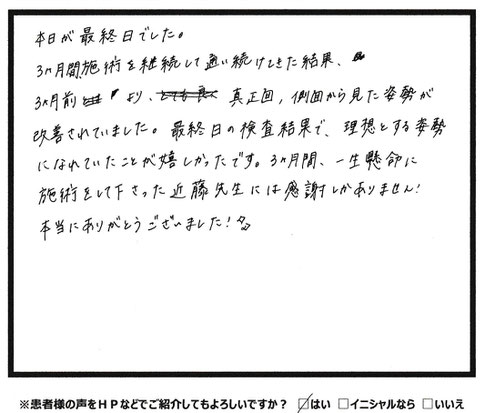 本日が最終日でした。
3ヶ月間施術を継続して通い続けてきた結果、
3ヶ月前より、真正面、側面から見た姿勢が
改善されていました。最終日の検査結果で、理想とする姿勢
になれていたことが嬉しかったです。3ヶ月間、一生懸命に
施術をして下さった近藤先生には感謝しかありません!
本当にありがとうございました!
※患者様の声をHPなどでご紹介してもよろしいですか? ☑はい □イニシャルなら □いいえ